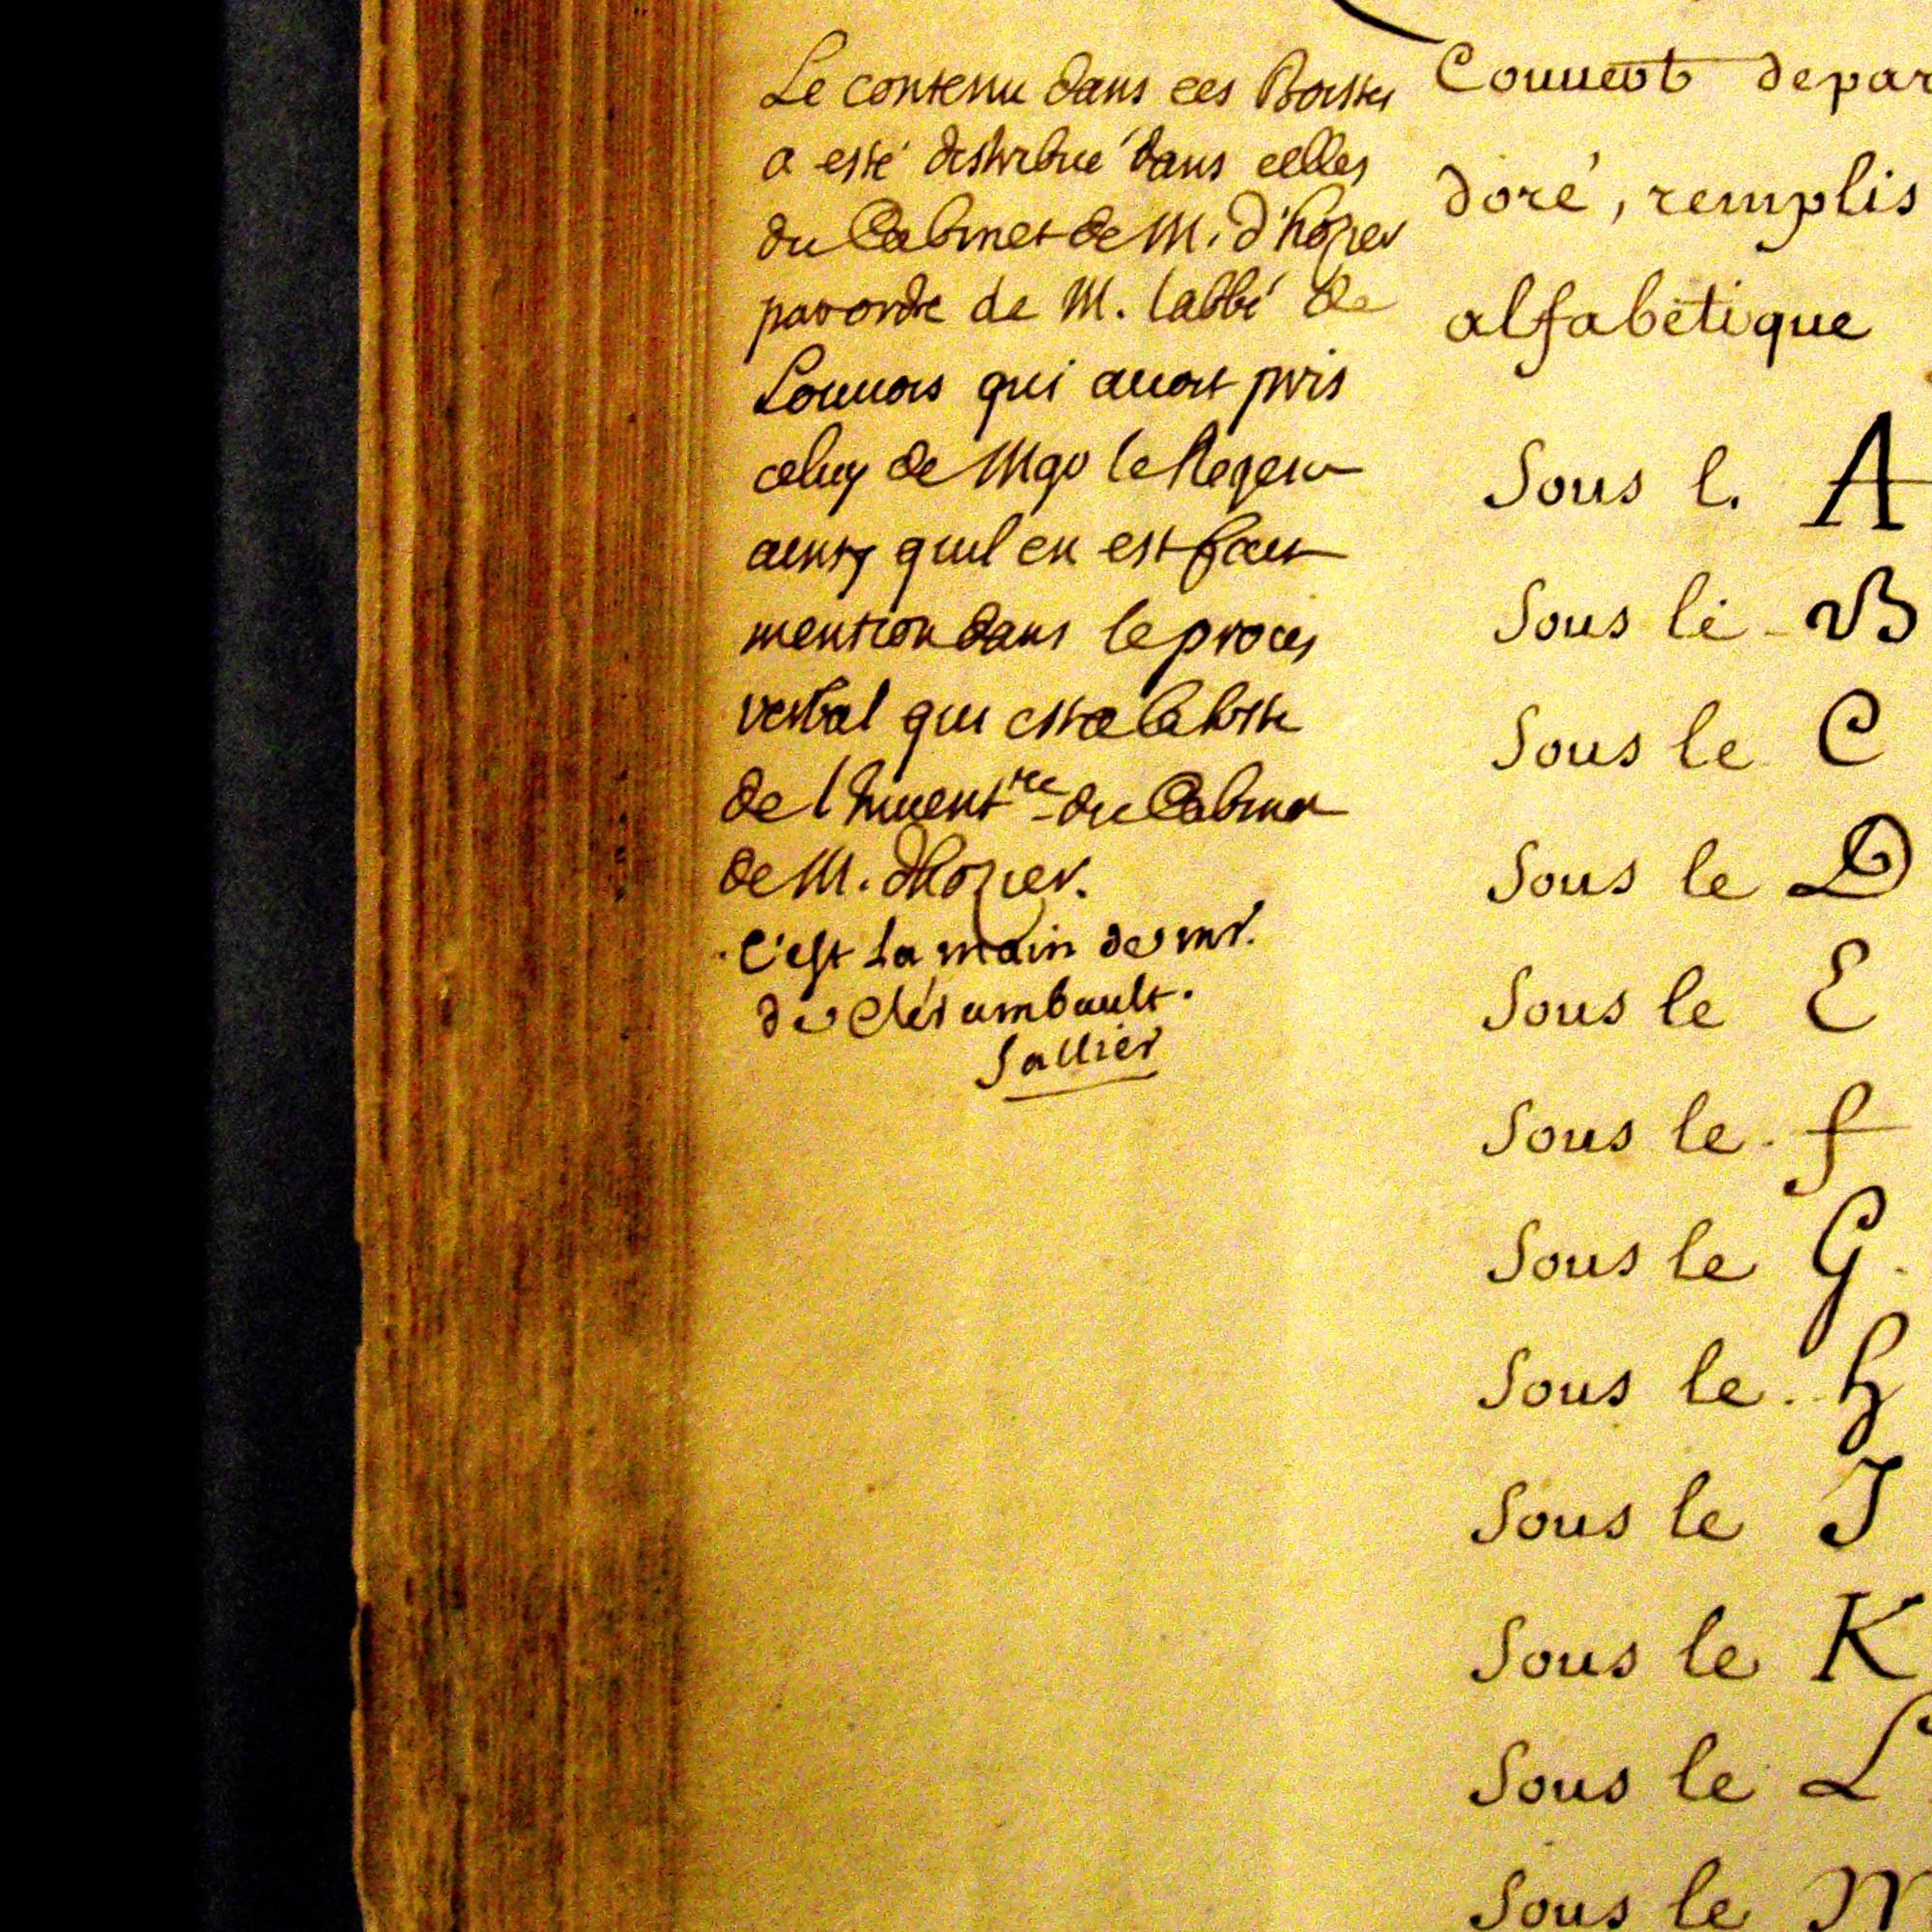 Le contenu dans ces Boistes
a esté distribué dans celles
du Cabinet de M. d'hozier
par ordre de M. l'abbé de
Louuois qui auoit pris
celuy de Mgr le Regent
ainsy quil en est fait
mention dans le proces
verbal qui est a la liste
de l'Inuent.re du Cabinet
de M. d'hozier.
C'est la main de mr.
de Clérambault.
Sallier
Couuert de par
doré, remplis
alfabétique
Sous l. A
Sous le B
Sous le C
Sous le D
Sous le E
Sous le f
Sous le G
Sous le h
Sous le J
Sous le K
Sous le L
Sous le M